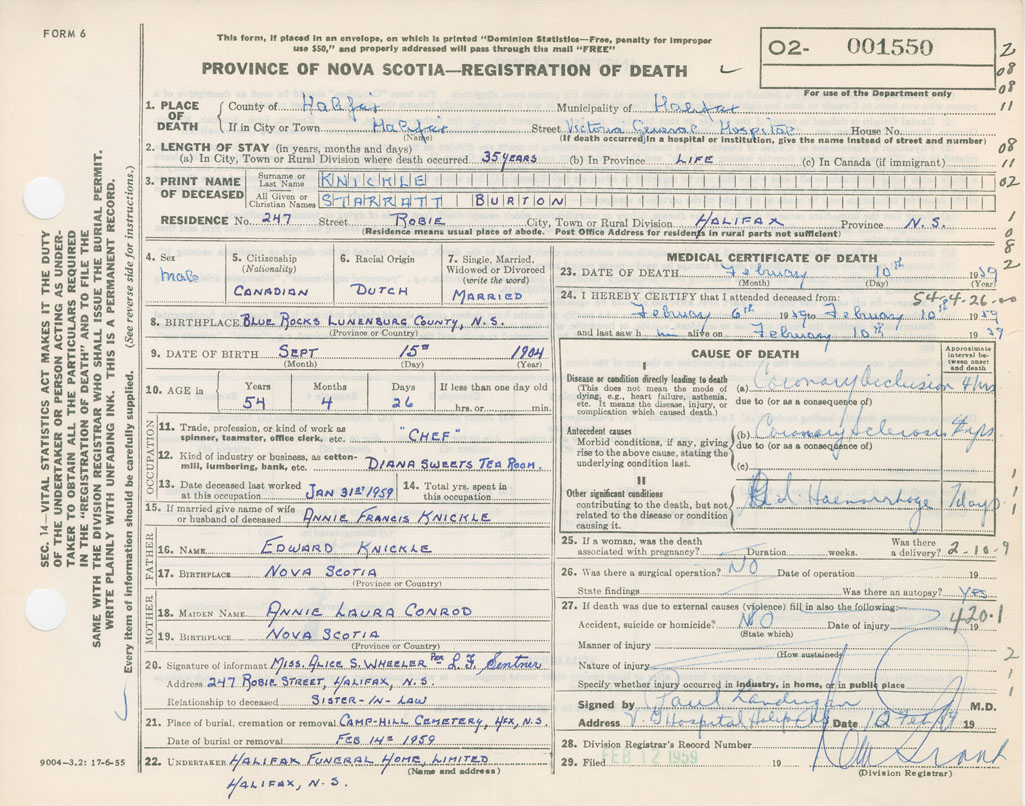 FORM 6
This form, if placed in an envelope, on which is printed "Dominion Statistics—Free, penalty for improper
use $50," and properly addressed will pass through the mail "FREE"
PROVINCE OF NOVA SCOTIA—REGISTRATION OF DEATH
02- 001550
For use of the Department only
2
08
08
11
08
11
02
1
0
8
2
1. PLACE OF DEATH
County of Halifax Municipality of Halifax
If in City or Town Halifax Street Victoria General Hospital House No.
(Name) (If death occurred in a hospital or institution, give the name instead of street and number)
2. LENGTH OF STAY (in years, months and days)
(a) In City, Town or Rural Division where death occurred 35 YEARS (b) In Province LIFE (c) In Canada (if immigrant)
3. PRINT NAME OF DECEASED
Surname or Last Name KNICKLE
All Given or Christian Names STARRATT BURTON
RESIDENCE No. 247 Street ROBIE City, Town or Rural Division HALIFAX Province N.S.
(Residence means usual place of abode. Post Office Address for residents in rural parts not sufficient)
4. Sex
male
5. Citizenship
(Nationality)
CANADIAN
6. Racial Origin
DUTCH
7. Single, Married,
Widowed or Divorced
(write the word)
MARRIED
8. BIRTHPLACE BLUE ROCKS LUNENBURG COUNTY, N.S.
(Province or Country)
9. DATE OF BIRTH SEPT 15TH 1904
(Month) (Day) (Year)
10. AGE in
Years Months Days If less than one day old
54 4 26 hrs. or min.
OCCUPATION
11. Trade, profession, or kind of work as
spinner, teamster, office clerk, etc. "CHEF"
12. Kind of industry or business, as cotton-
mill, lumbering, bank, etc. DIANA SWEETS TEA ROOM.
13. Date deceased last worked
at this occupation JAN 31ST 1959
14. Total yrs. spent in
this occupation
15. If married give name of wife
or husband of deceased ANNIE FRANCIS KNICKLE
FATHER
16. NAME EDWARD KNICKLE
17. BIRTHPLACE NOVA SCOTIA
(Province or Country)
MOTHER
18. MAIDEN NAME ANNIE LAURA CONROD
19. BIRTHPLACE NOVA SCOTIA
(Province or Country)
20. Signature of informant MISS. ALICE S. WHEELER PER L.F. Sentner
Address 247 ROBIE STREET, HALIFAX, N.S.
Relationship to deceased SISTER-IN-LAW
21. Place of burial, cremation or removal CAMP-HILL CEMETERY, HFX, N.S.
Date of burial or removal FEB 14TH 1959
22. UNDERTAKER HALIFAX FUNERAL HOME, LIMITED
(Name and address)
HALIFAX, N.S.
MEDICAL CERTIFICATE OF DEATH
23. DATE OF DEATH February 10th 1959
(Month) (Day) (Year)
54-4-26-00
24. I HEREBY CERTIFY that I attended deceased from:
February 6th 1959 to February 10th 1959
and last saw him alive on February 10th 1959
CAUSE OF DEATH
Approximate
interval be-
tween onset
and death
I
Disease or condition directly leading to death
(This does not mean the mode of
dying, e.g., heart failure, asthenia,
etc. It means the disease, injury, or
complication which caused death.)
(a) Coronary Occlusion 4 hrs
due to (or as a consequence of)
Antecedent causes
Morbid conditions, if any, giving
rise to the above cause, stating the
underlying condition last.
(b) Coronary Sclerosis yrs
due to (or as a consequence of)
(c)
II
Other significant conditions
contributing to the death, but not
related to the disease or condition
causing it.
G.I. Haemorrhage 7 days
25. If a woman, was the death
associated with pregnancy? Duration weeks. Was there
a delivery? 2-10-9
26. Was there a surgical operation? NO Date of operation 19
State findings Was there an autopsy? yes
27. If death was due to external causes (violence) fill in also the following:
Accident, suicide or homicide? NO Date of injury 19
420.1
(State which)
Manner of injury
(How sustained)
Nature of injury
Specify whether injury occurred in industry, in home, or in public place
Signed by Paul Landrigan M.D.
Address V G Hospital Halifax Date 12 Feb 59 19
28. Division Registrar's Record Number
29. Filed FEB 12 1959 19
(Division Registrar)
1
1
1
2
1
1
SEC. 14—VITAL STATISTICS ACT MAKES IT THE DUTY
OF THE UNDERTAKER OR PERSON ACTING AS UNDER-
TAKER TO OBTAIN ALL THE PARTICULARS REQUIRED
IN THE "REGISTRATION OF DEATH" AND TO FILE THE
SAME WITH THE DIVISION REGISTRAR WHO SHALL ISSUE THE BURIAL PERMIT.
WRITE PLAINLY WITH UNFADING INK. THIS IS A PERMANENT RECORD.
Every item of information should be carefully supplied. (See reverse side for instructions.)
9004-3.2: 17-6-55